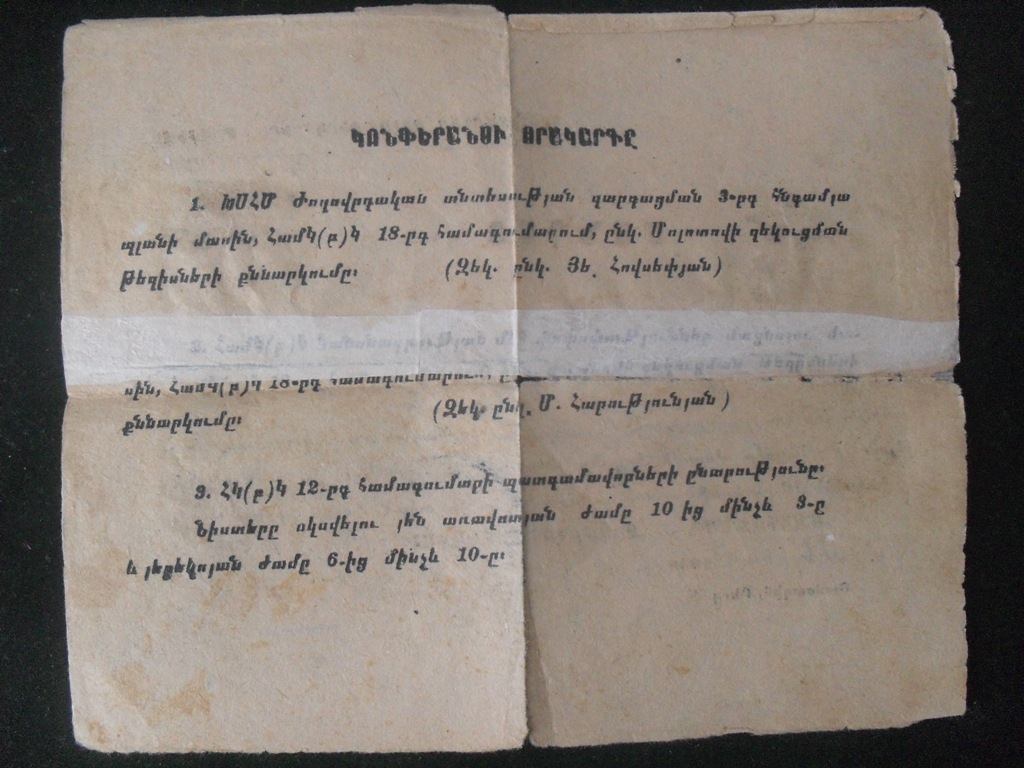 ԿՈՆՖԵՐԱՆՍԻ ՕՐԱԿԱՐԳԸ
1. ԽՍՀՄ Ժողովրդական տնտեսության զարգացման 3-րդ հնգամյա
պլանի մասին, Համկ(բ)կ 18-րդ համագումարում, ընկ. Մոլոտովի զեկուցման
թեզիսների քննարկումը։ (Զեկ. ընկ. Յե. Հովսեփյան)
սին, Համկ(բ)կ 18-րդ համագումարում,
քննարկումը։ (Զեկ. ընկ. Մ. Հարությունյան)
3. ՀԿ(բ)Կ 12-րդ համագումարի պատգամավորների ընտրությունը։
Նիստերը սկսվելու յեն առավոտյան ժամը 10 ից մինչև 3-ը
և յերեկոյան ժամը 6-ից մինչև 10-ը։